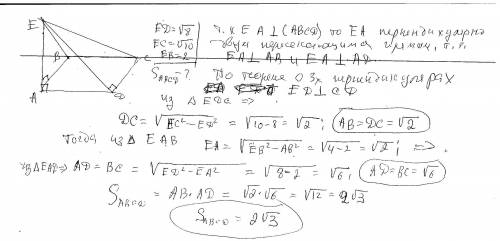 E
B
C
A
D
ED=√8
EC=√10
EB=2
S_ABCD-?
т.к EA⊥(ABCD) то EA перпендикулярна
двум пересекающимся прямым, т.е.
EA⊥AB и EA⊥AD.
По теореме о 3х перпендикулярах
ED⊥CD
из △EDC =>
DC = √(EC²-ED²) = √(10-8) = √2; AB=DC=√2
Тогда из △ EAB
EA = √(EB²-AB²) = √(4-2) = √2; =>.
из △EAD => AD=BC = √(ED²-EA²) = √(8-2) = √6; AD=BC=√6
S_ABCD = AB·AD = √2·√6 = √12 = 2√3
S_ABCD = 2√3